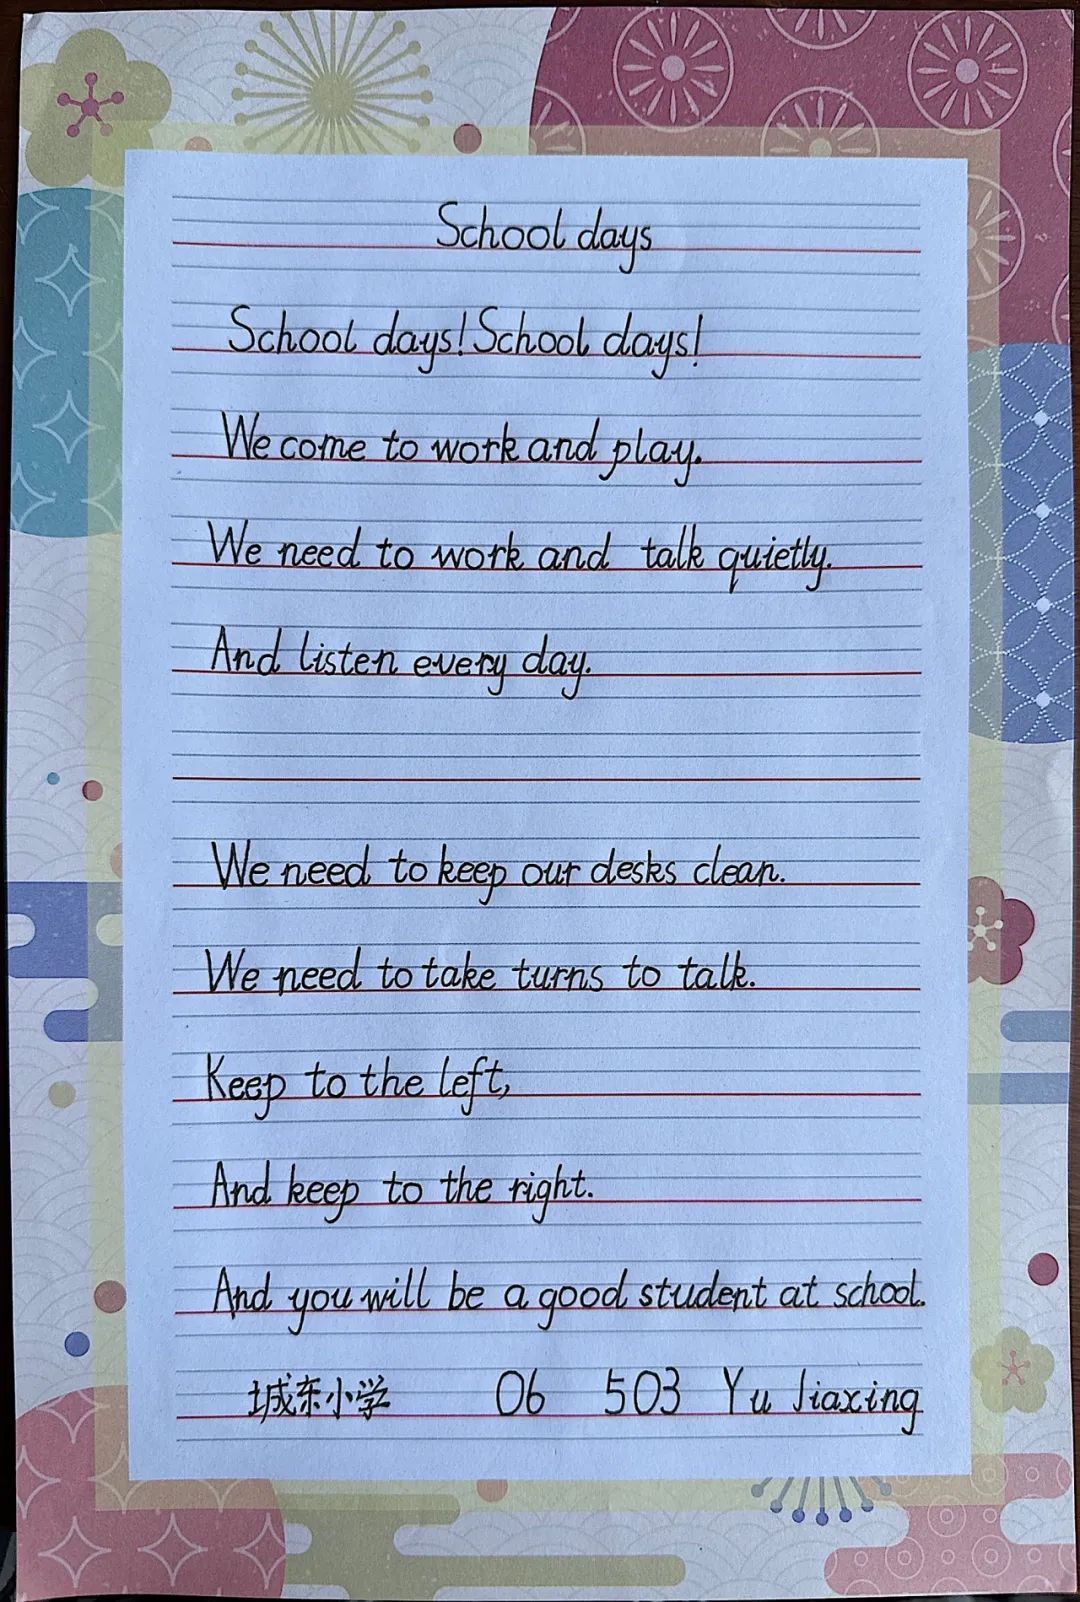 School days
School days! School days!
We come to work and play.
We need to work and talk quietly.
And listen every day.
We need to keep our desks clean.
We need to take turns to talk.
Keep to the left,
And keep to the right.
And you will be a good student at school.
城东小学 06 503 Yu Jiaxing